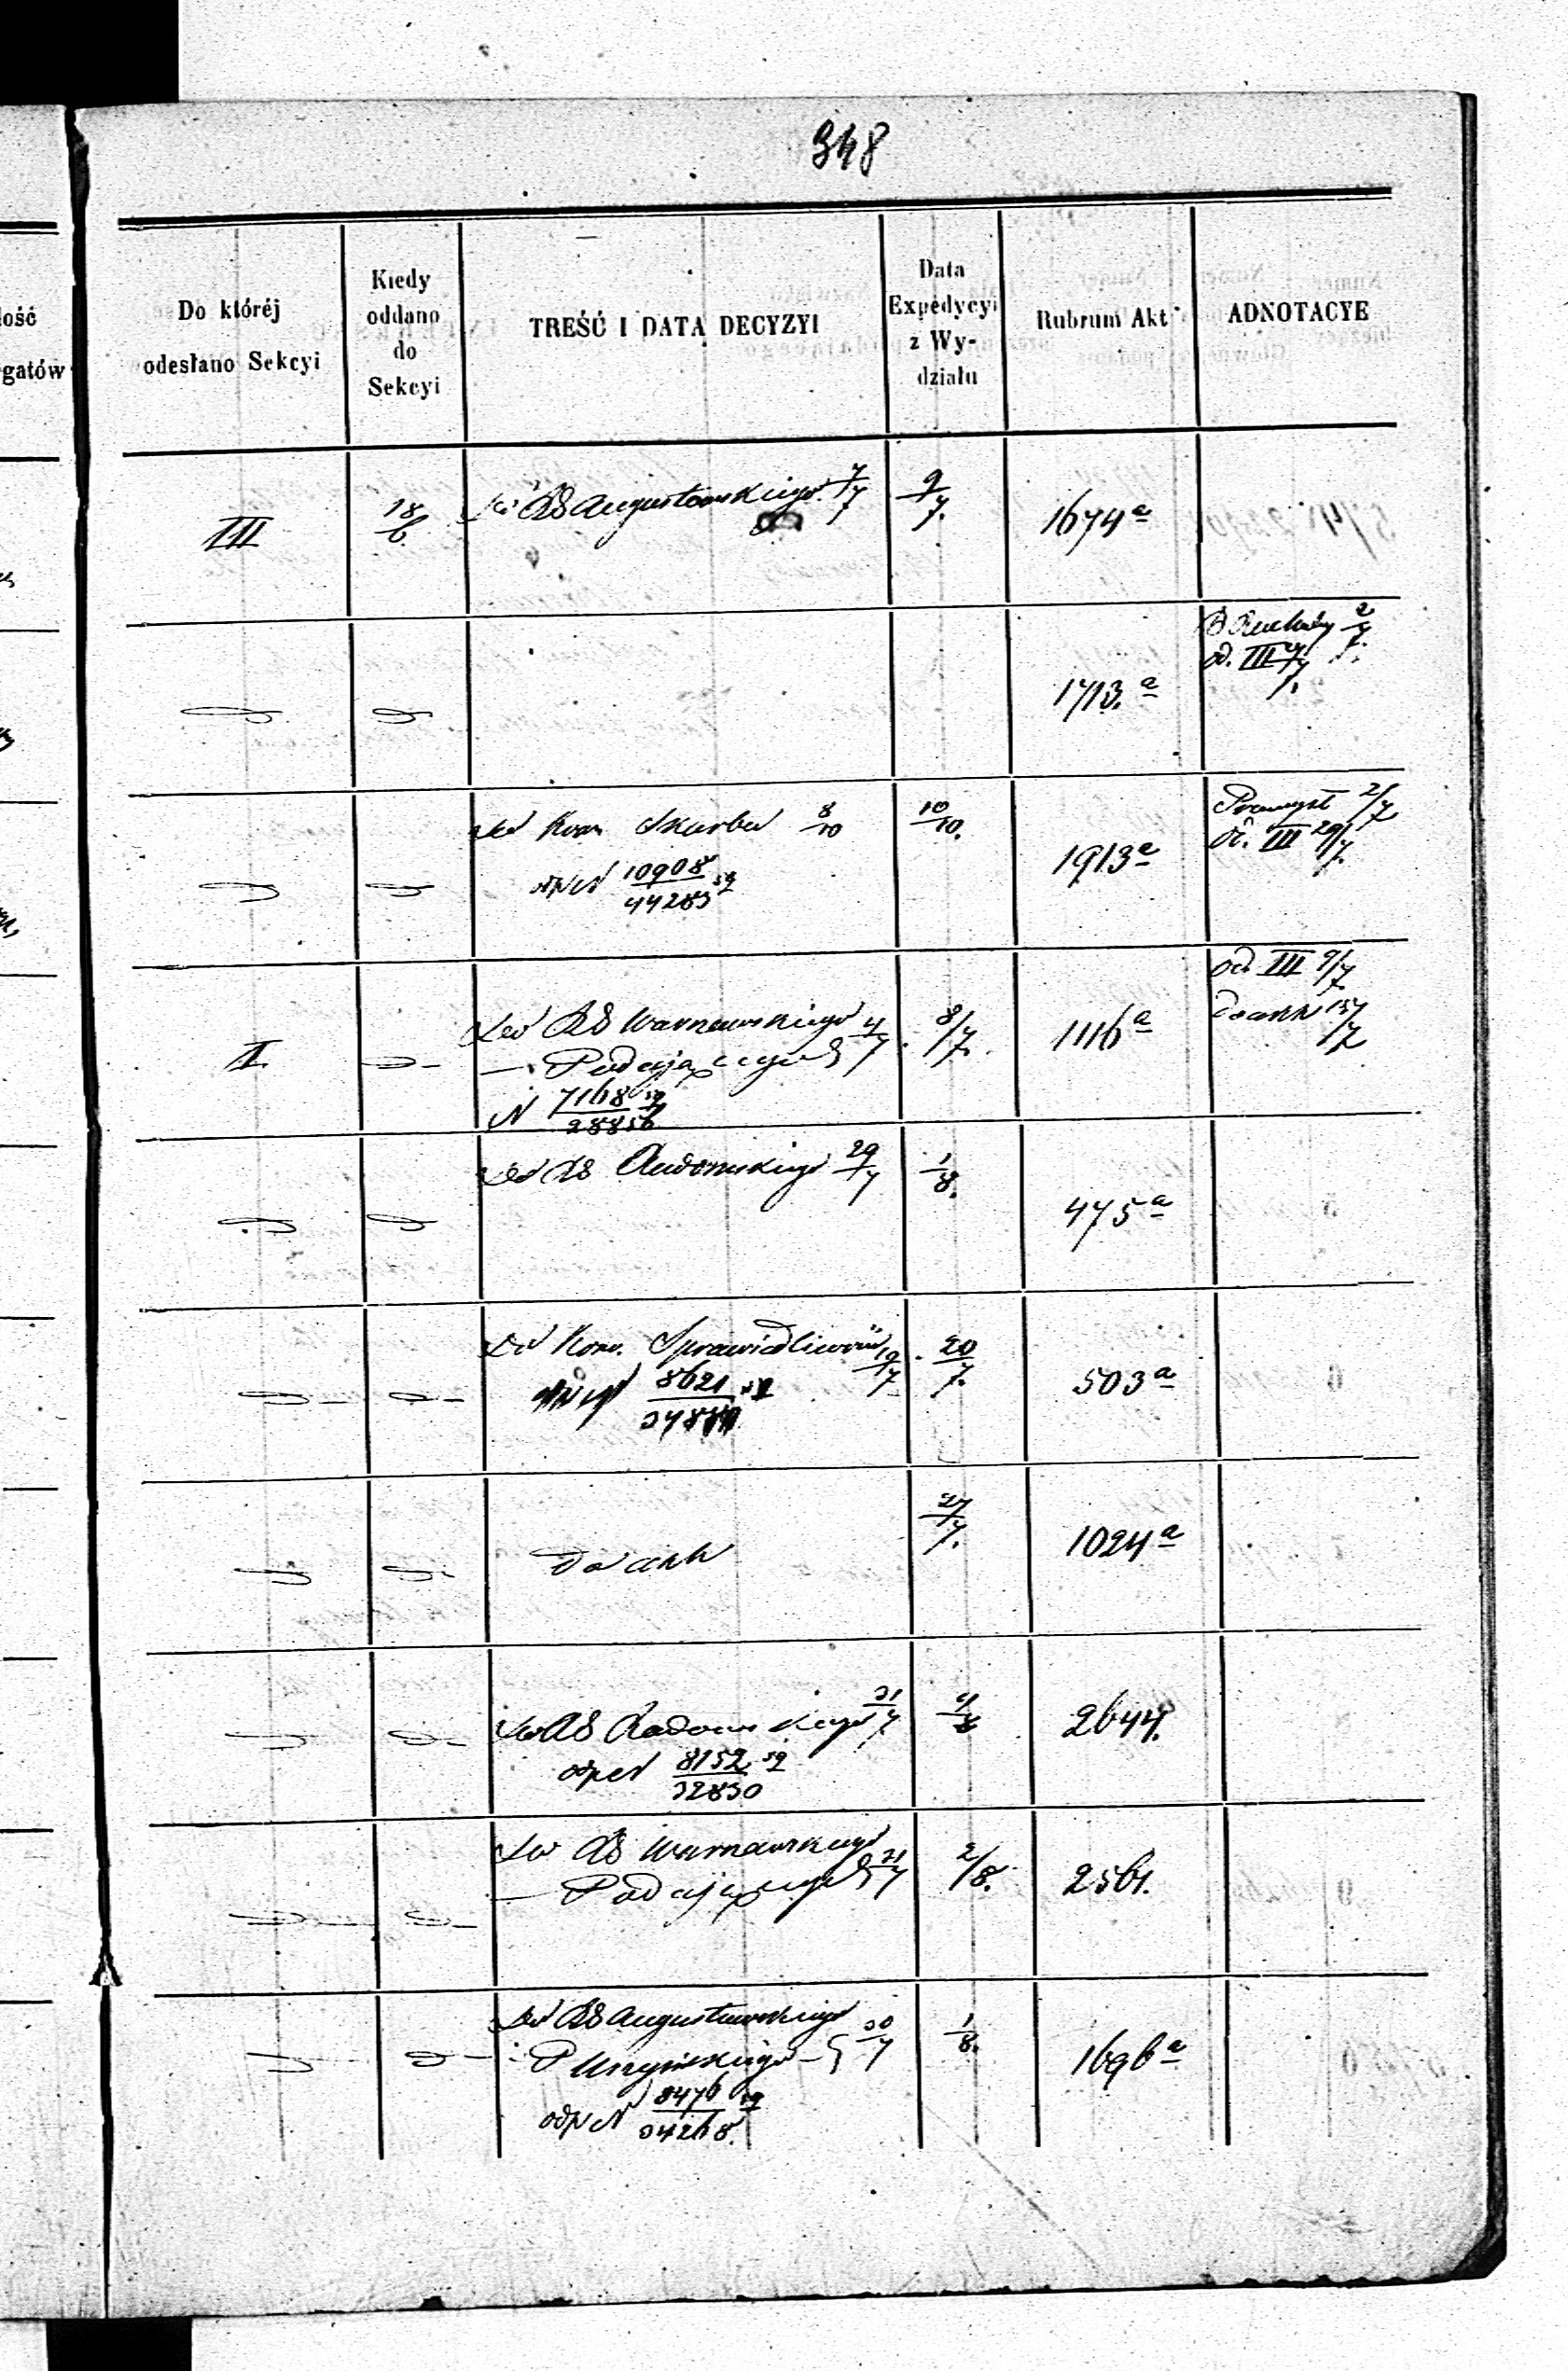 348
lość
gatów
Do któréj
odesłano Sekcyi
Kiedy
oddano
do
Sekcyi
TREŚĆ I DATA DECYZYI
Data
Expedycyi
z Wy-
działu
Rubrum Akt
ADNOTACYE
III
18/6
Do RG Augustowskiego 7/7
9/7.
1674 a
1713. a
2/7.
od. III
Do Kom Skarbu 8/10
odp N 10908/44283
10/10.
1913 a
Przemysł 2/7
od. III 29/7.
II.
Do RG Warszawskiego 4/7
— Podającego
N 7168/28856
8/7.
1116 a
od III 9/7
do akt 15/7
Do RG Radomskiego 29/7
1/8.
475 a
Do Kom. Sprawiedliwości 19/7
8621
20/7.
503 a
do akt
27/7.
1024 a
Do RG Radomskiego 31/7
odp N 8152/32830
4/8
2644.
Do RG Warszawskiego
— Podającego 31/7
2/8.
2561.
Do RG Augustowskiego 30/7
odp N 8476/34268.
1/8.
1696 a